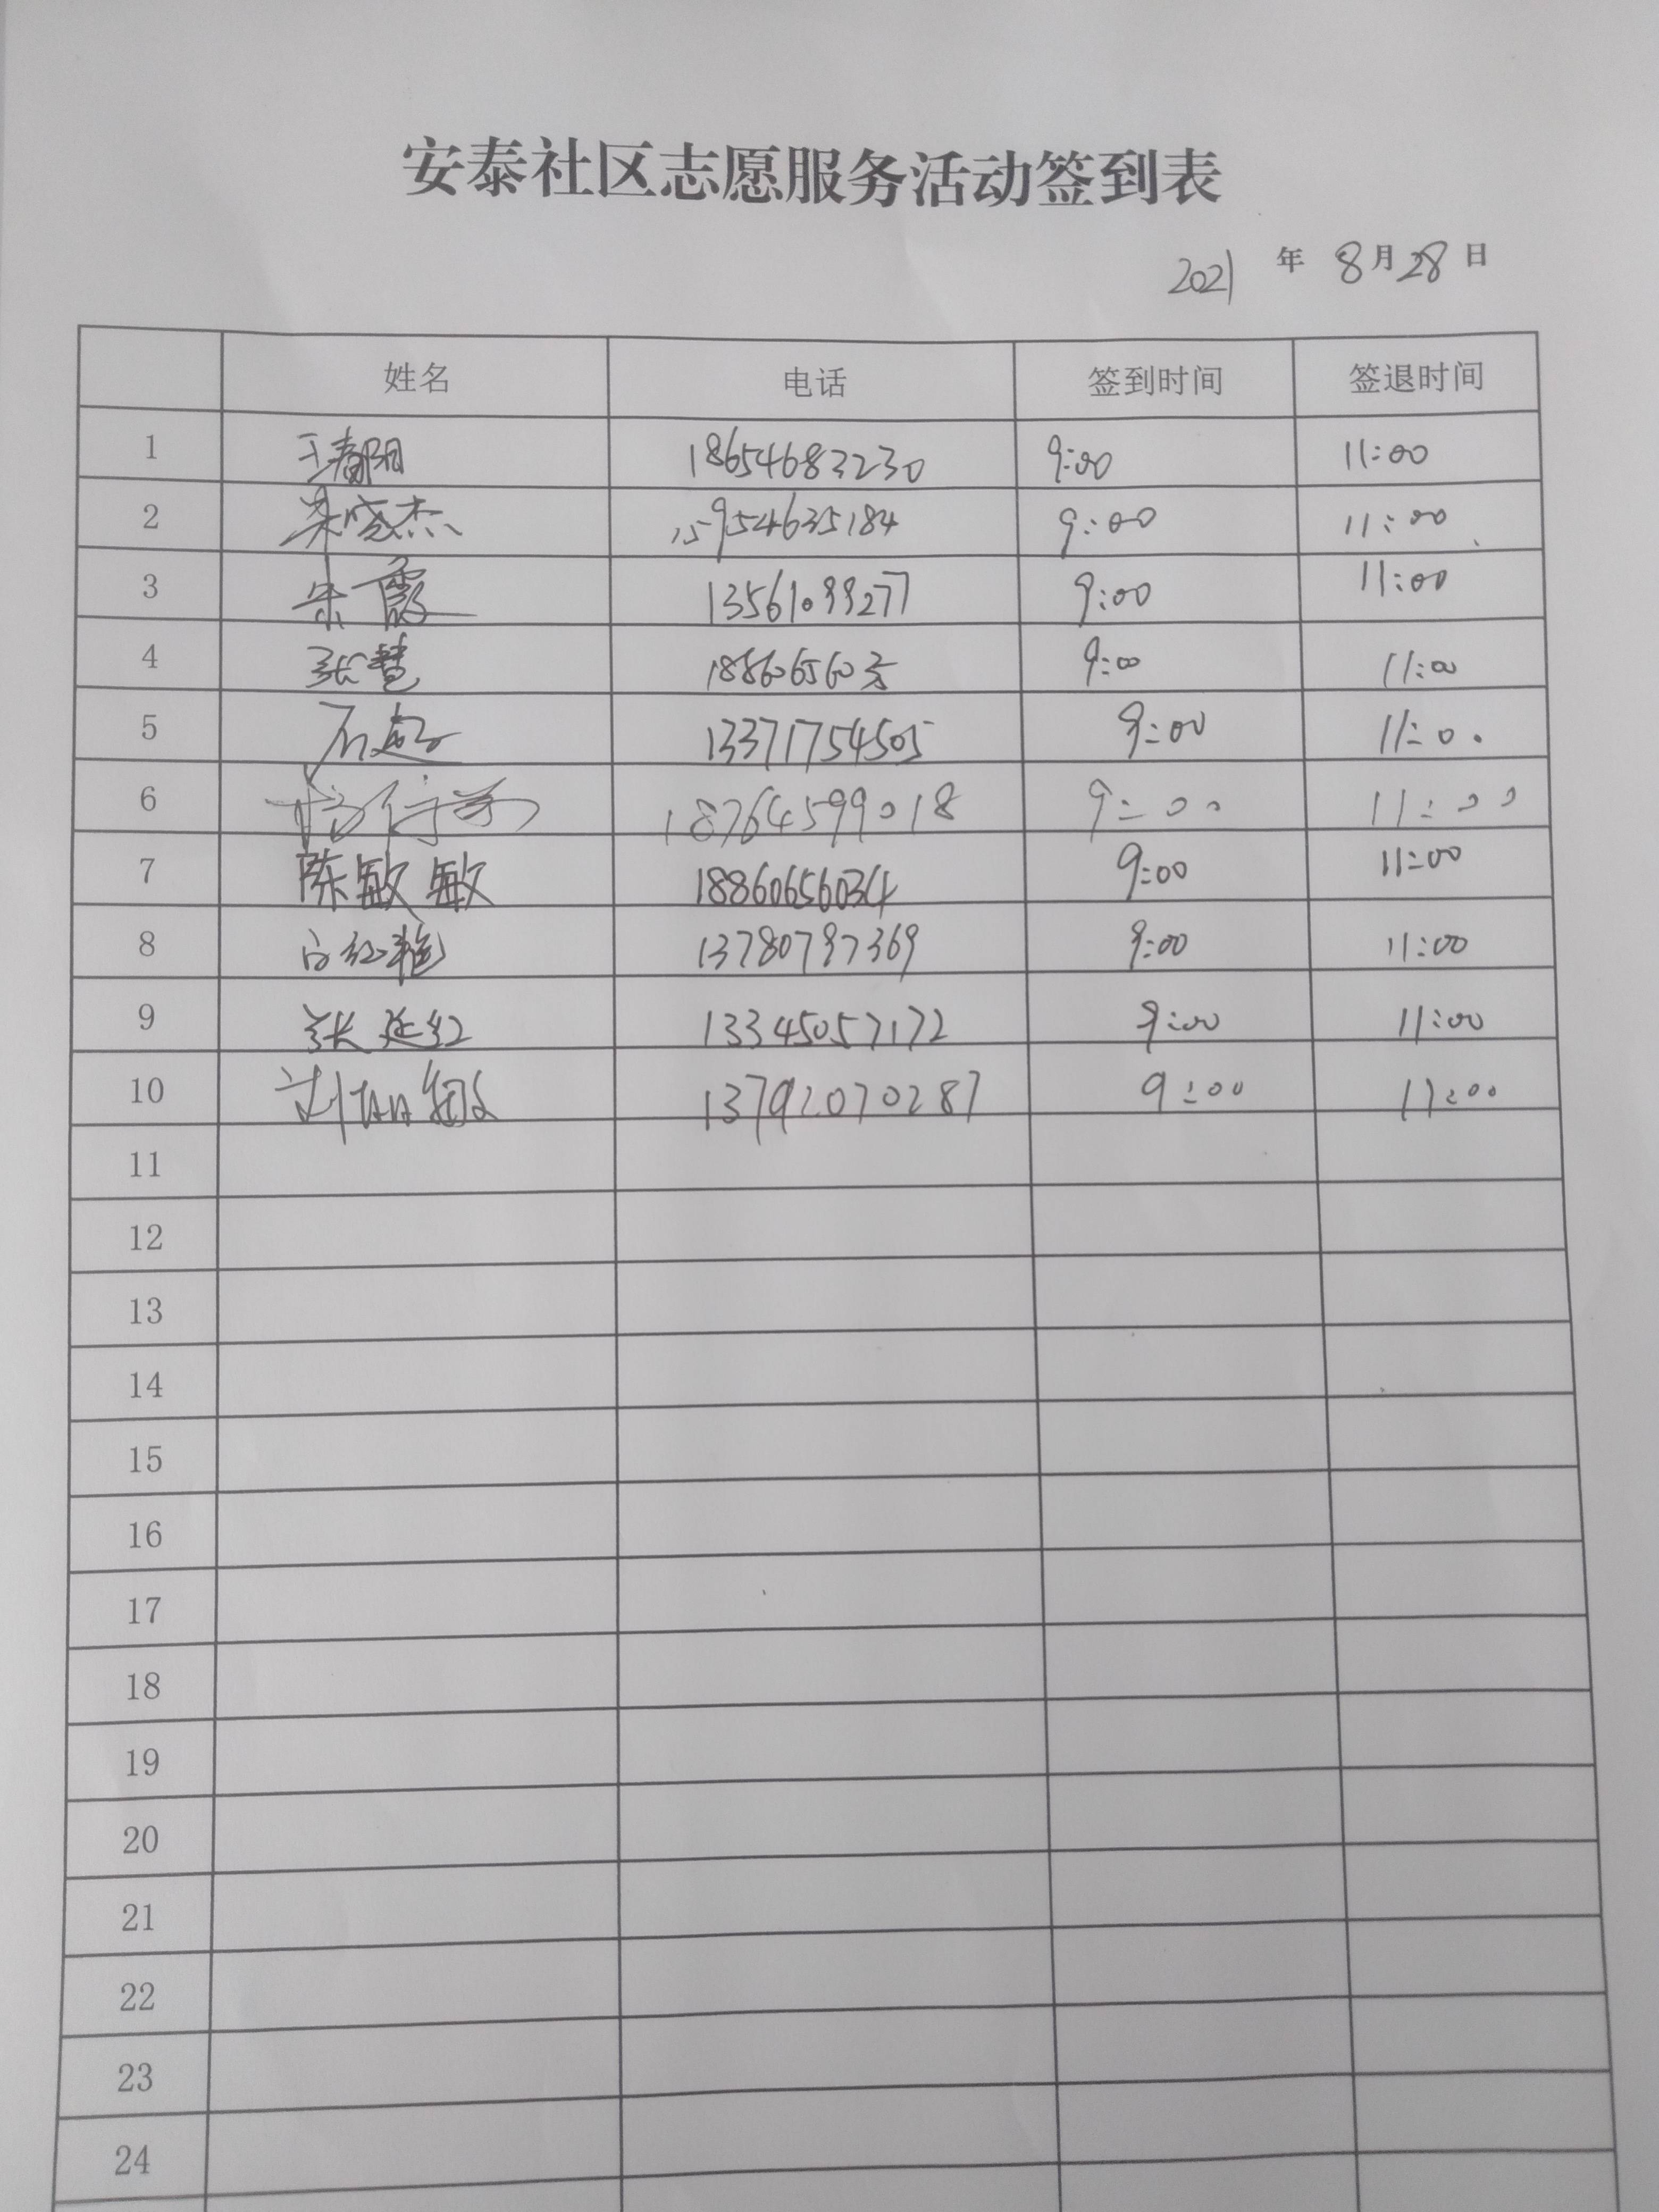 安泰社区志愿服务活动签到表
2021 年 8月28日
姓名 电话 签到时间 签退时间
1 王春阳 18654683230 9:00 11:00
2 梁晓杰 15954635184 9:00 11:00
3 宋霞 13561099277 9:00 11:00
4 张慧 188606560 9:00 11:00
5 石超 13371754505 9:00 11:00
6 18764599018 9:00 11:00
7 陈敏敏 18860656034 9:00 11:00
8 白红艳 13780797369 9:00 11:00
9 张延红 13345057172 9:00 11:00
10 刘 13792070287 9:00 11:00
11
12
13
14
15
16
17
18
19
20
21
22
23
24